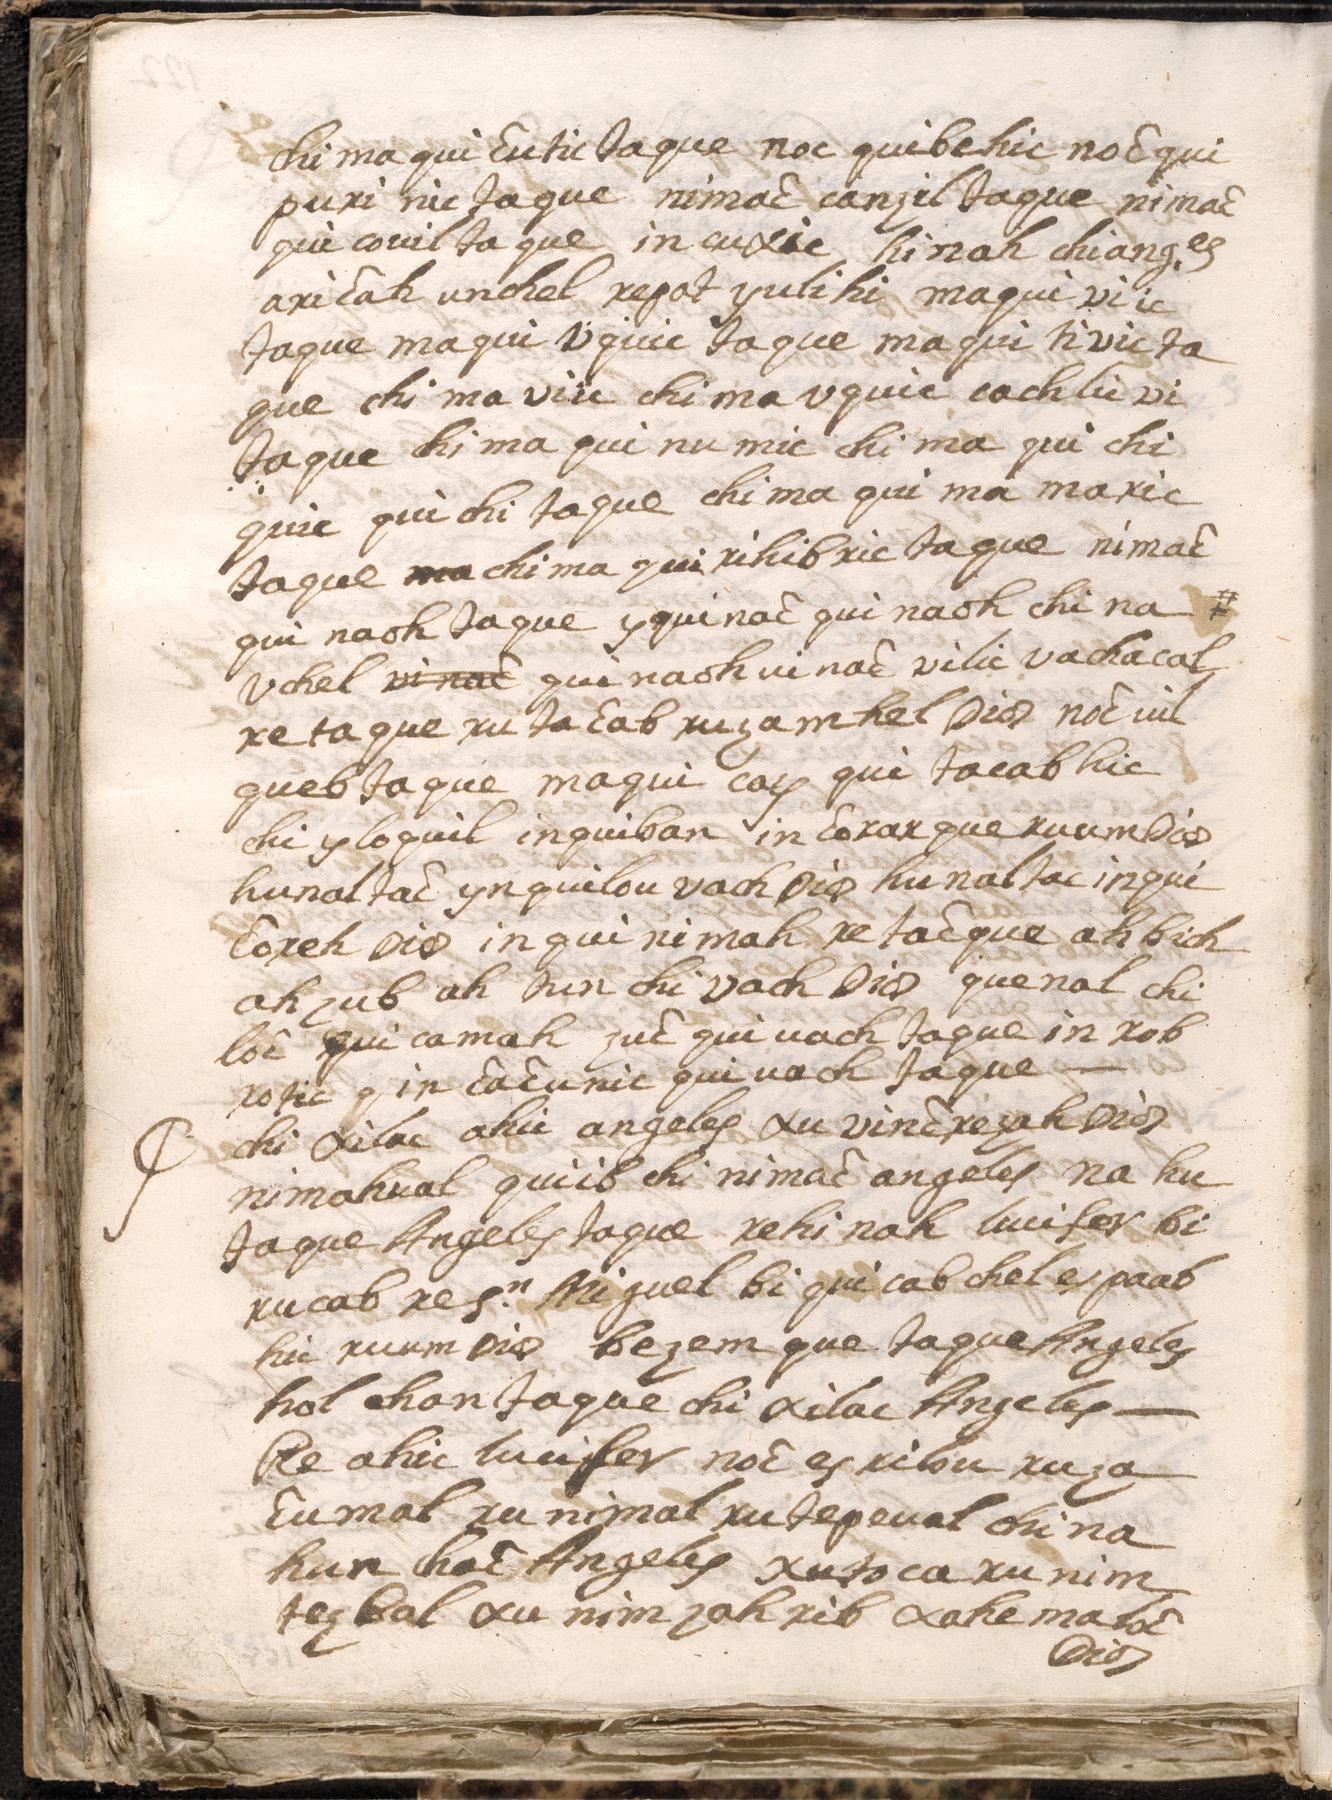 chi ma qui c̄utic taque noc quibehic noc̄ qui
puri nic taque nimac̄ canzil taque nimac̄
qui couil taque in cuxic hinah chi ang.es
aric̄ah unchel repot yulihi maqui viic
taque maqui vquic taque maqui ti vic ta
que chi ma viic chi ma vquic cachlic vi
taque chi ma qui nu mic chi ma qui chi
quic qui chi taque chi ma qui ma maric
taque ma chi ma qui rihibric taque nimac̄
qui naoh taque y qui nac̄ qui naoh chi na #
vchel vi nac̄ qui naoh uinac̄ vilic vachacal
re taque ru ta c̄ab ruzamhel Dios noc̄ iul
queb taque maqui cay qui tacabhic
chi yloquil inquiban in c̄orarque ruum Dios
hunaltac̄ ynquilou vach Dios hunaltac inqui
c̄oreh Dios inqui nimah re tac̄que ahbich
ah zub ah tun chi vach Dios quenal chi
loc̄ qui camah zuc̄ qui uach taque in rob
rotic y in c̄ac̄unic qui uach taque —
chi xilac ahic angeles xu vinc̄rezah Dios
nimahual quiib chi nimac̄ angeles na hu
taque Angeles taque rehinah lucifer bi
rucab re s.n Miguel bi qui cab chel es paab
hic ruum Dios bezem que taque Angeles
hol chan taque chi xilac Angeles —
Re ahic lucifer noc̄ es rilou ruza
c̄umal ru nimal ru tepeual chi na
hun hac̄ Angeles xutoca ru nim
tezbal xu nim zah rib xahe ma loc̄
Dios